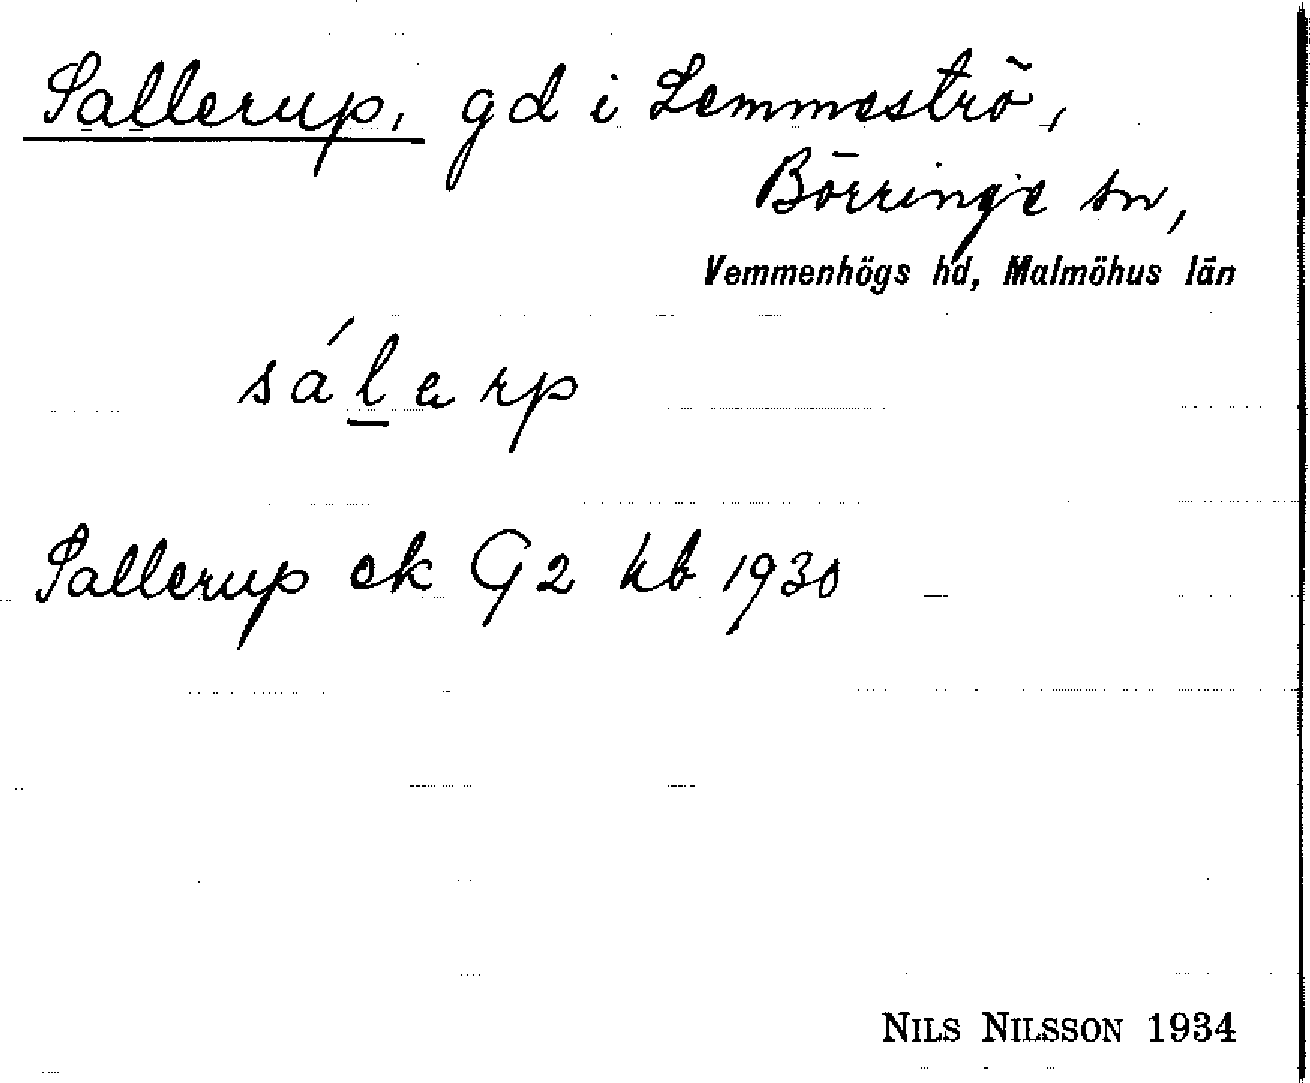 Sallerup, gd i Lemmeströ,
Börringe sn,
Vemmenhögs hd, Malmöhus län
sálarp
Sallerup ek G2 kb 1930
NILS NILSSON 1934